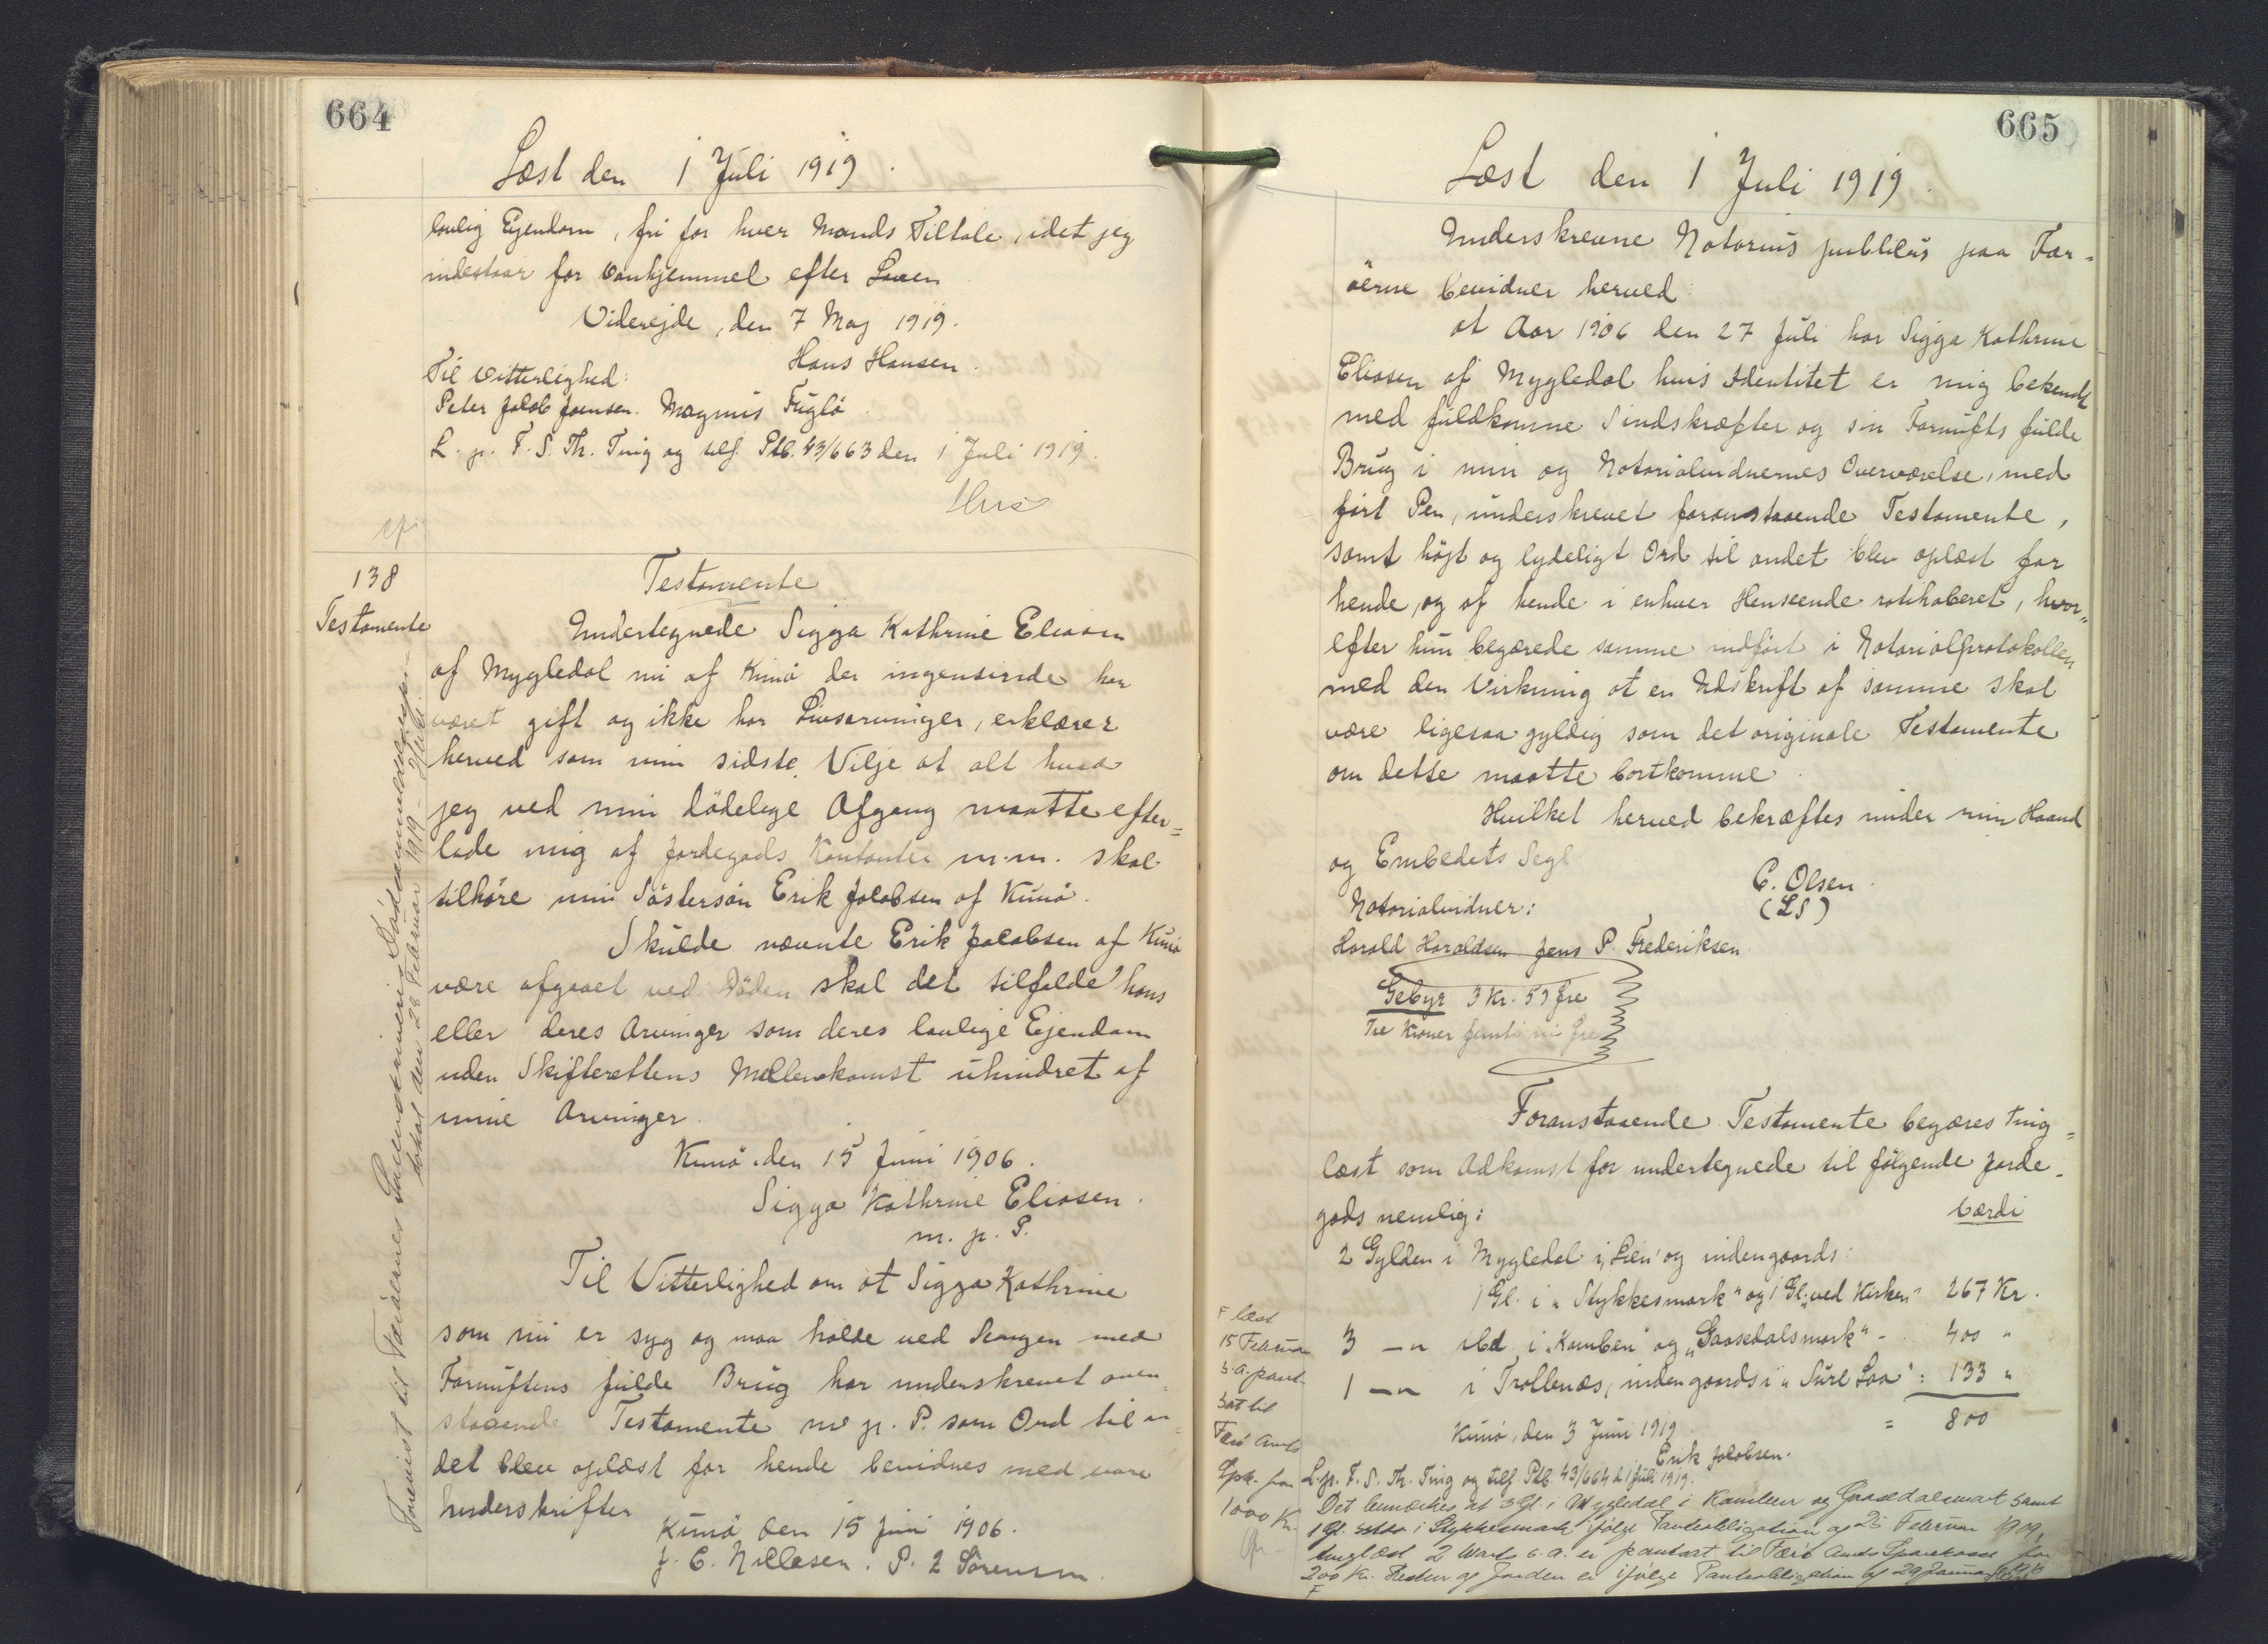 664
Læst den 1 Juli 1919.
lovlig Ejendom, fri for hver Mands Tiltale, idet jeg
indestaar for Vanhjemmel efter Loven
Viderejde, den 7 Maj 1919.
Hans Hansen.
Til Vitterlighed:
Peter Jakob Joensen. Magnus Fuglö.
L. p. F. S. Th. Ting og tilf. Ptb. 43/663 den 1 Juli 1919.
138
Testamente
Testamente
Undertegnede Sigga Kathrine Eliasen
af Mygledal nu af Kunö der ingensinde har
været gift og ikke har Livsarvinger, erklærer
herved som min sidste Vilje at alt hvad
jeg ved min dödelige Afgang maatte efter=
lade mig af Jordegods Kontanter m.m. skal
tilhöre min Söstersön Erik Jakobsen af Kunö.
Skulde nævnte Erik Jakobsen af Kunö
være afgaaet ved Döden skal det tilfalde hans
eller deres Arvinger som deres lovlige Ejendom
uden Skifterettens Mellemkomst uhindret af
mine Arvinger.
Kunö, den 15 Juni 1906.
Sigga Kathrine Eliasen.
m. p. P.
Til Vitterlighed om at Sigga Kathrine
som nu er syg og maa holde ved Sengen med
Fornuftens fulde Brug har underskrevet oven=
staaende Testamente m p. P. som Ord til an=
det blev oplæst for hende bevidnes med vore
Underskrifter
Kunö den 15 Juni 1906.
J. C. Nillesen. P. L Sörensen.
Forevist til Færöernes
den 28 Februar 1919
665
Læst den 1 Juli 1919.
Underskrevne Notarius publicus paa Fær=
öerne bevidner herved:
at Aar 1906 den 27 Juli har Sigga Kathrine
Eliasen af Mygledal hvis Identitet er mig bekendt
med fuldkomne Sindskræfter og sin Fornufts fulde
Brug i min og Notarialvidnernes Overværelse, med
fört Pen, underskrevet foranstaaende Testamente,
samt höjt og lydeligt Ord til andet blev oplæst for
hende, og af hende i enhver Henseende ratihaberet, hvor=
efter hun begærede samme indfört i Notarialprotokollen
med den Virkning at en Udskrift af samme skal
være ligesaa gyldig som det originale Testamente
om dette maatte bortkomme.
Hvilket herved bekræftes under min Haand
og Embedets Segl
C. Olsen.
(LS)
Notarialvidner:
Harald Haraldsen Jens P. Frederiksen.
Gebyr 3 Kr. 59 Öre
Tre Kroner femti ni Öre
Foranstaaende Testamente begæres ting=
læst som Adkomst for undertegnede til fölgende Jorde=
gods nemlig:
Værdi
2 Gylden i Mygledal i „Lien" og indengaards:
1 Gl. i „Stykkesmark" og 1 Gl. „ved Kirken" 267 Kr.
3 —"— ibd. i „Kamben" og „Gaasedalsmark" - 400 "
1 —"— i Trollenæs, indengaards i „Sure Laa": 133 "
= 800
Kunö, den 3 Juni 1919.
Erik Jakobsen.
L. p. F. S. Th. Ting og tilf Ptb. 43/664 d. 1 Juli 1919.
Det bemærkes at 3 Gl. i Mygledal i Kamben og Gaasedalsmark samt
1 Gl. i Stykkesmark ifölge Panteobligation af 25 Februar 1909,
tinglæst 2 Marts s. A. er pantsat til Færö Amts Sparekasse for
200 Kr. Resten af Jorden er ifölge Panteobligation af 29 Januar
F læst
15 Februar
s. A. pant
sat til
Færö Amts
Spk. for
1000 Kr.